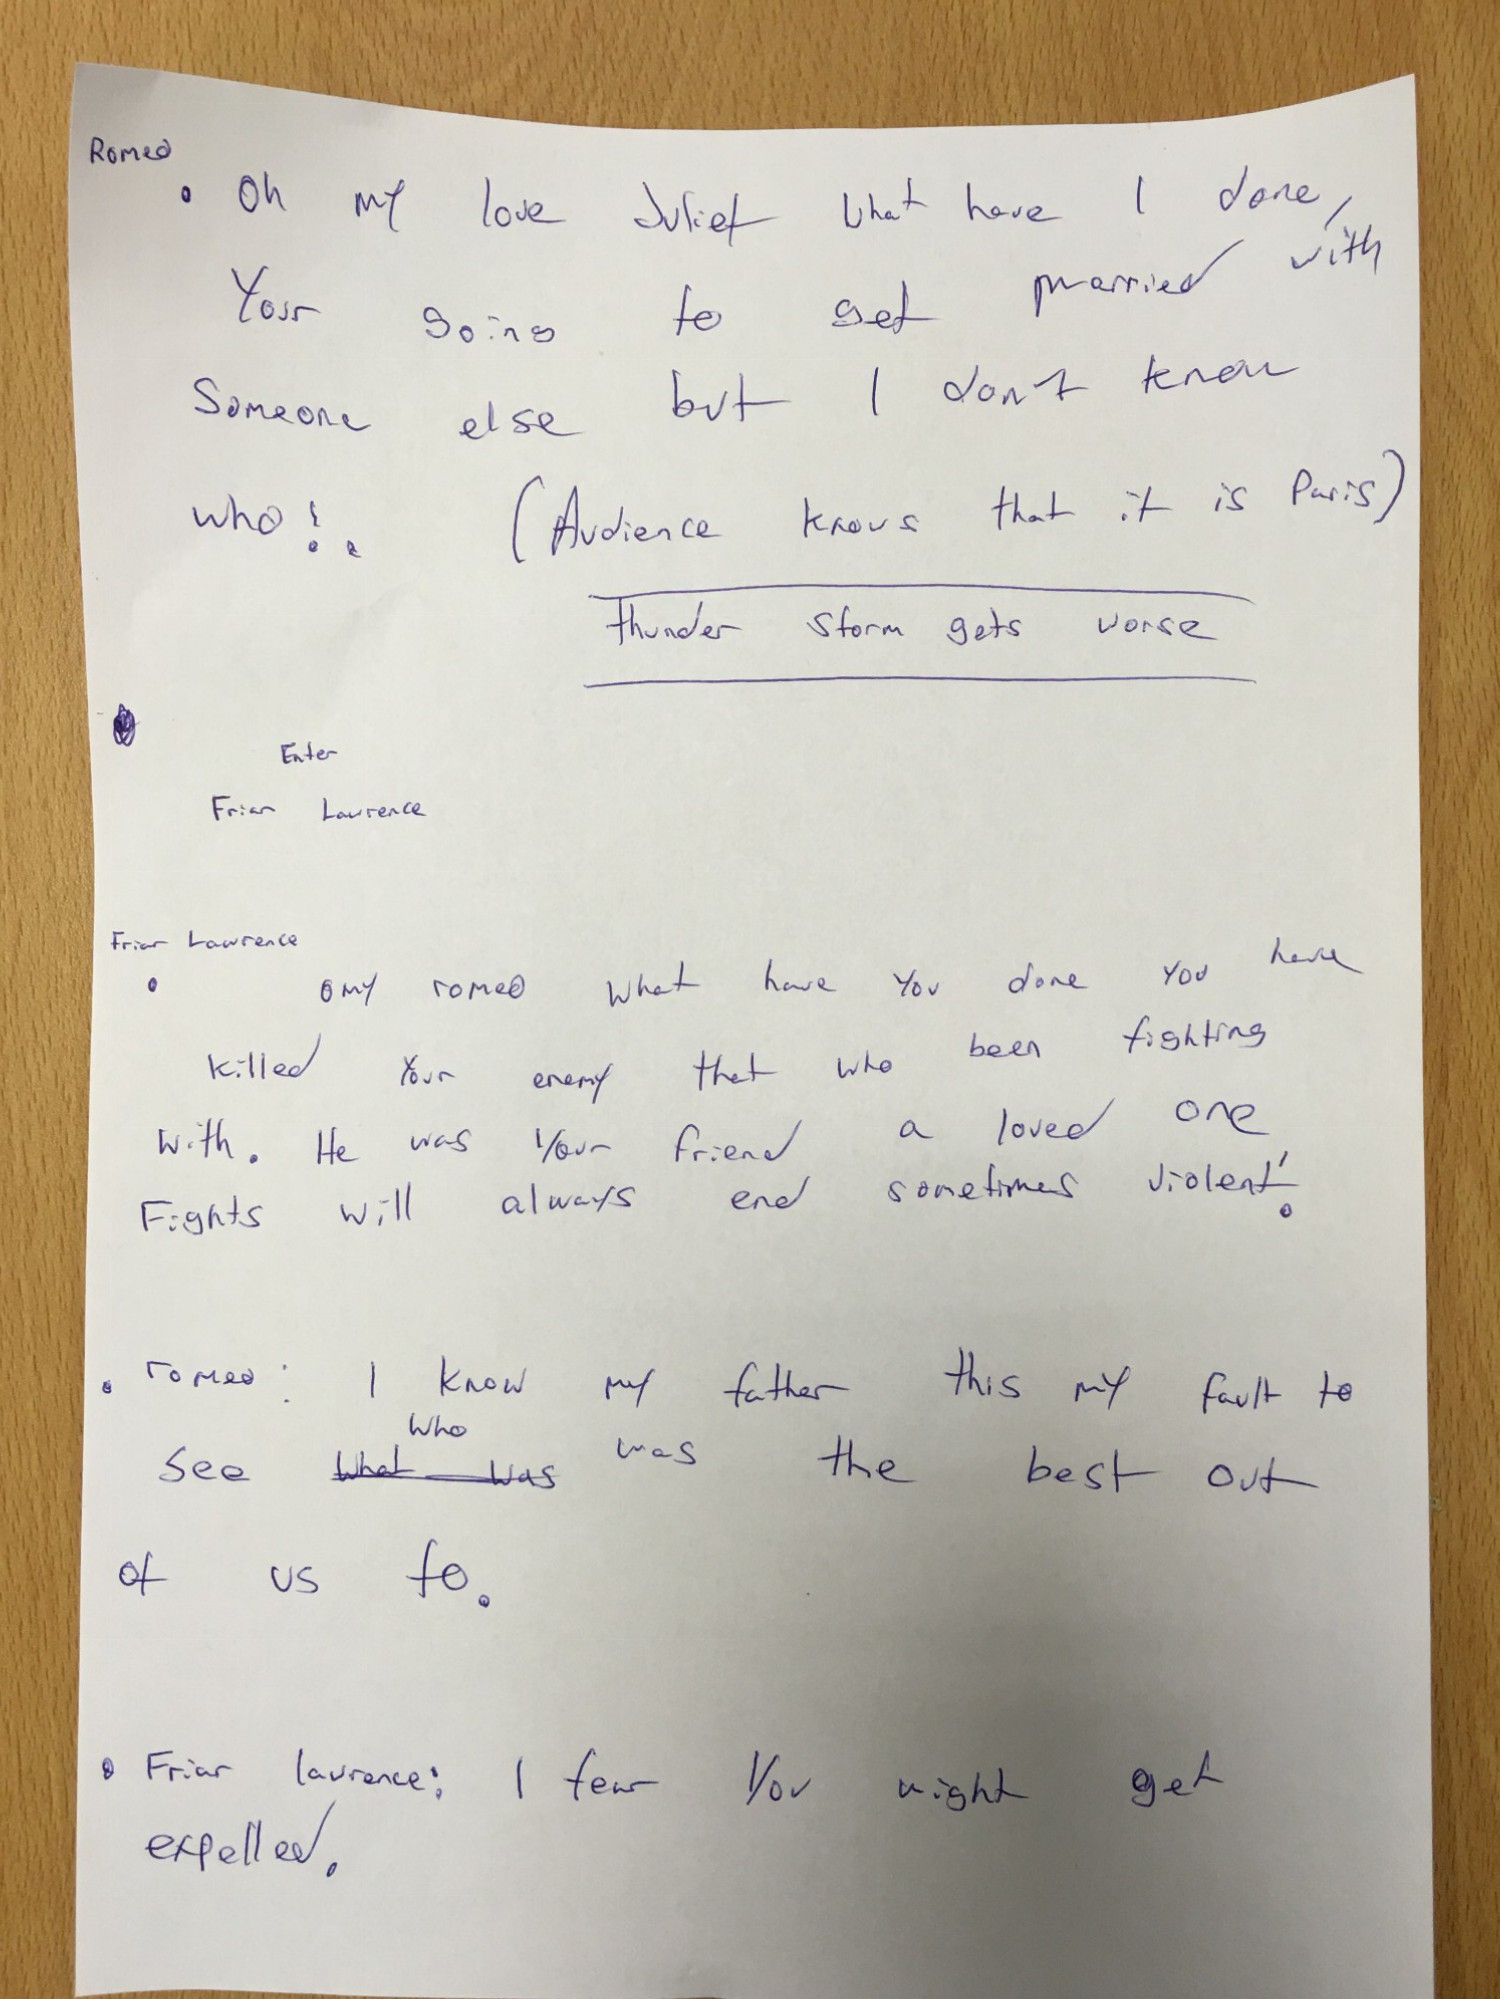 Romeo
• Oh my love Juliet what have I done,
Your going to get married with
Someone else but I don't know
who!. (Audience knows that it is Paris)
thunder storm gets worse
Enter
Friar Lawrence
Friar Lawrence
• omy romeo what have you done you have
killed Your enemy that who been fighting
with. He was your friend a loved one
Fights will always end sometimes violent!
• romeo: I know my father this my fault to
who
see what was was the best out
of us to.
• Friar laurence: I fear you might get
expelled.